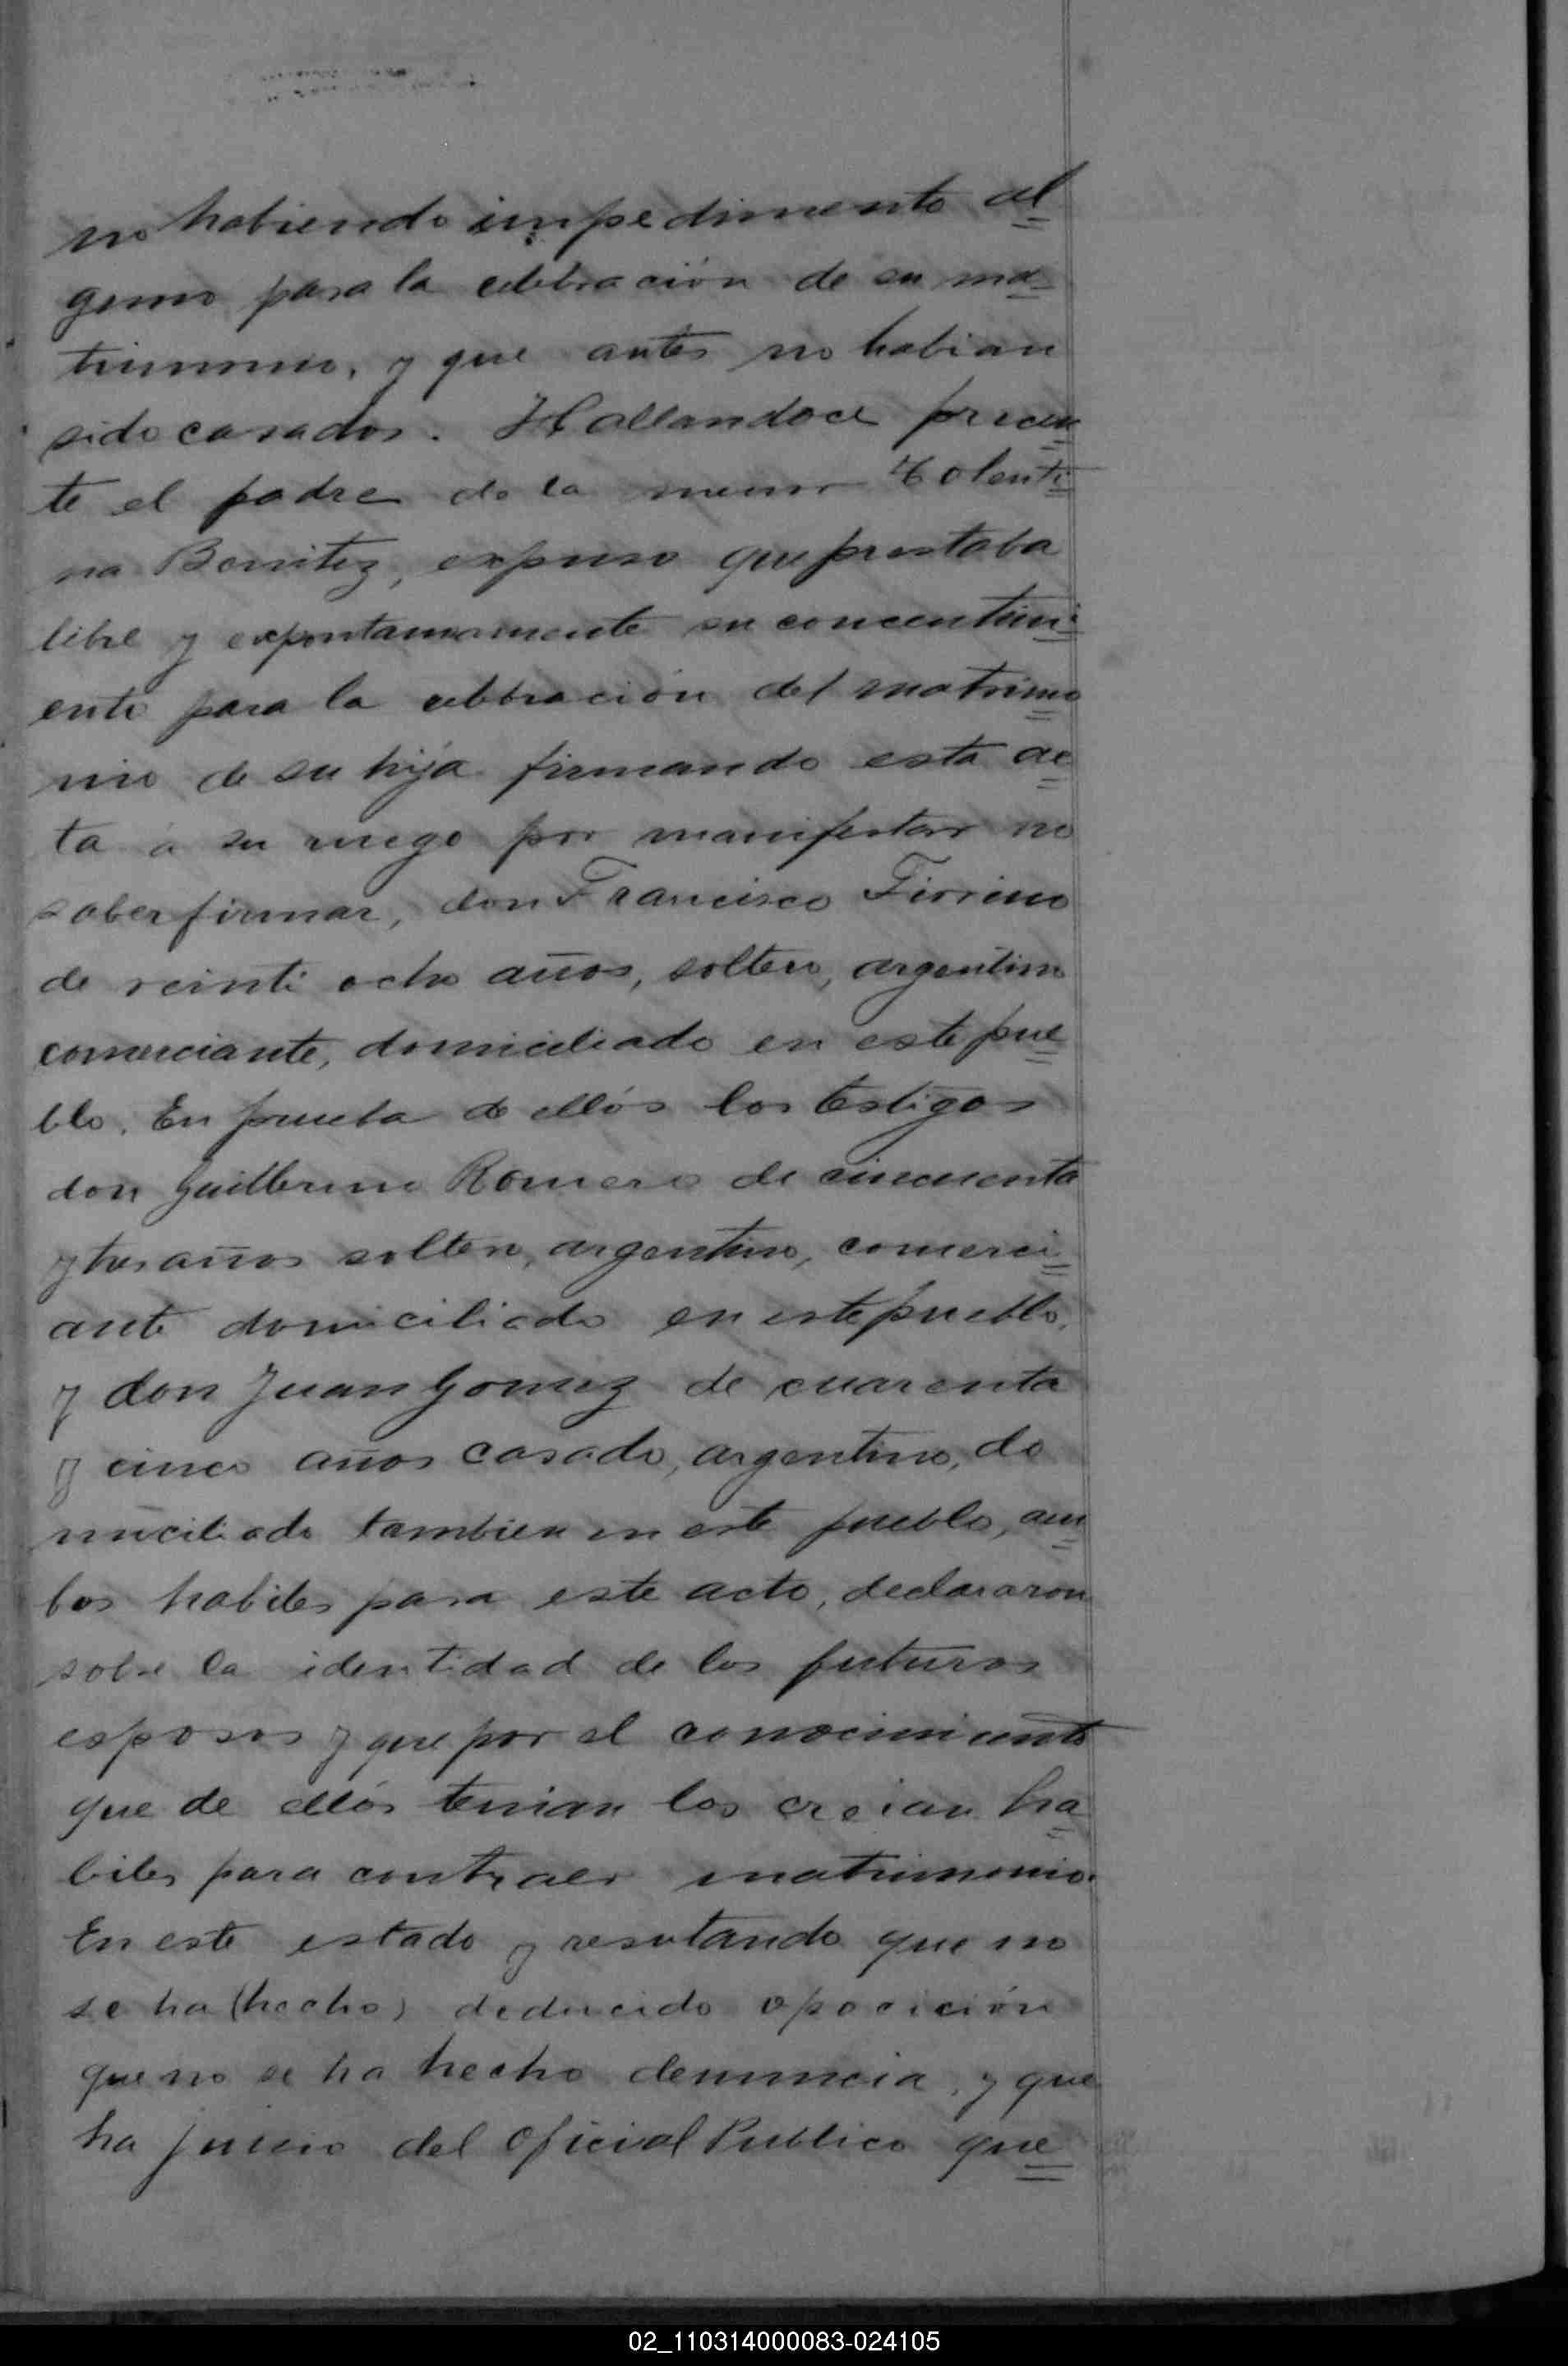 no habiendo impedimento al=
guno para la celebración de su ma=
trimonio, y que antes no habian
sido casados. Hallandoce precen=
te el padre de la menor Tolenti=
na Benitez, expuso que prestaba
libre y expontaneamente su concentimi=
ento para la celebración del matrimo=
nio de su hija firmando esta ac=
ta á su ruego por manifestar no
saber firmar, don Francisco
de veinti ocho años, soltero, argentino
comerciante, domiciliado en este pue=
blo. En prueba de ellos los testigos
don Guillermo Romero de cincuenta
y tres años soltero, argentino, comerci=
ante domiciliado en este pueblo,
y don Juan Gomez de cuarenta
y cinco años casado, argentino, do
miciliado tambien en este pueblo, am=
bos habiles para este acto, declararon
sobre la identidad de los futuros
esposos y que por el conocimiento
que de ellos tenian los creian ha=
biles para contraer matrimonio.
En este estado y resultando que no
se ha (hecho) deducido oposición
que no se ha hecho denuncia, y que
ha juicio del Oficial Publico que=
02_110314000083-024105